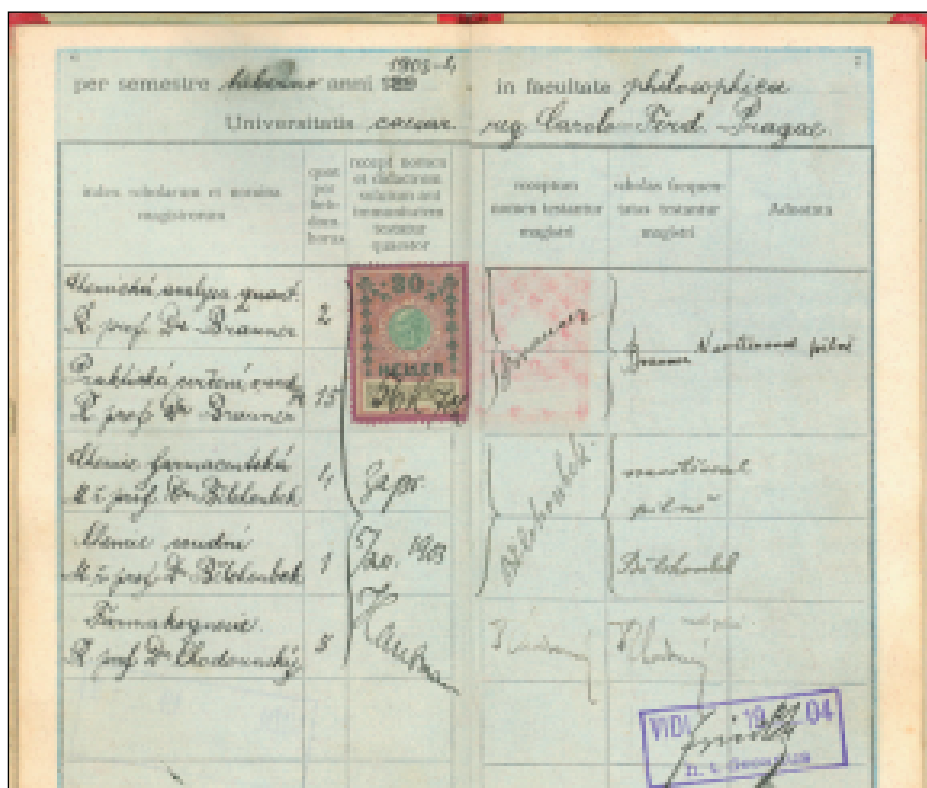 1903-4
per semestre hiberno anni 189 in facultate philosophica
Universitatis caesar. reg Carolo-Ferd. Pragae.
index scholarum et nomina
magistrorum
quot
per
heb-
dom.
horas
recepi nomen
et didactrum
solutum aut
immunitatem
testatur
quaestor
receptum
nomen testantur
magistri
scholas frequen-
tatas testantur
magistri
Adnotata
Chemická analysa quant.
Ř. prof. Dr Brauner
2
20
HELLER
Brauner
Brauner Navštěvoval pilně
Praktická cvičení
Ř prof Dr Brauner
15
Chemie farmaceutická
M. ř. prof. Dr Bělohoubek
4
Bělohoubek
navštěvoval
pilně
Chemie soudní
M. ř. prof. Dr Bělohoubek
1
1903
Bělohoubek
Farmakognosie.
Ř. prof Dr Chodounský
5
VIDI 19 04